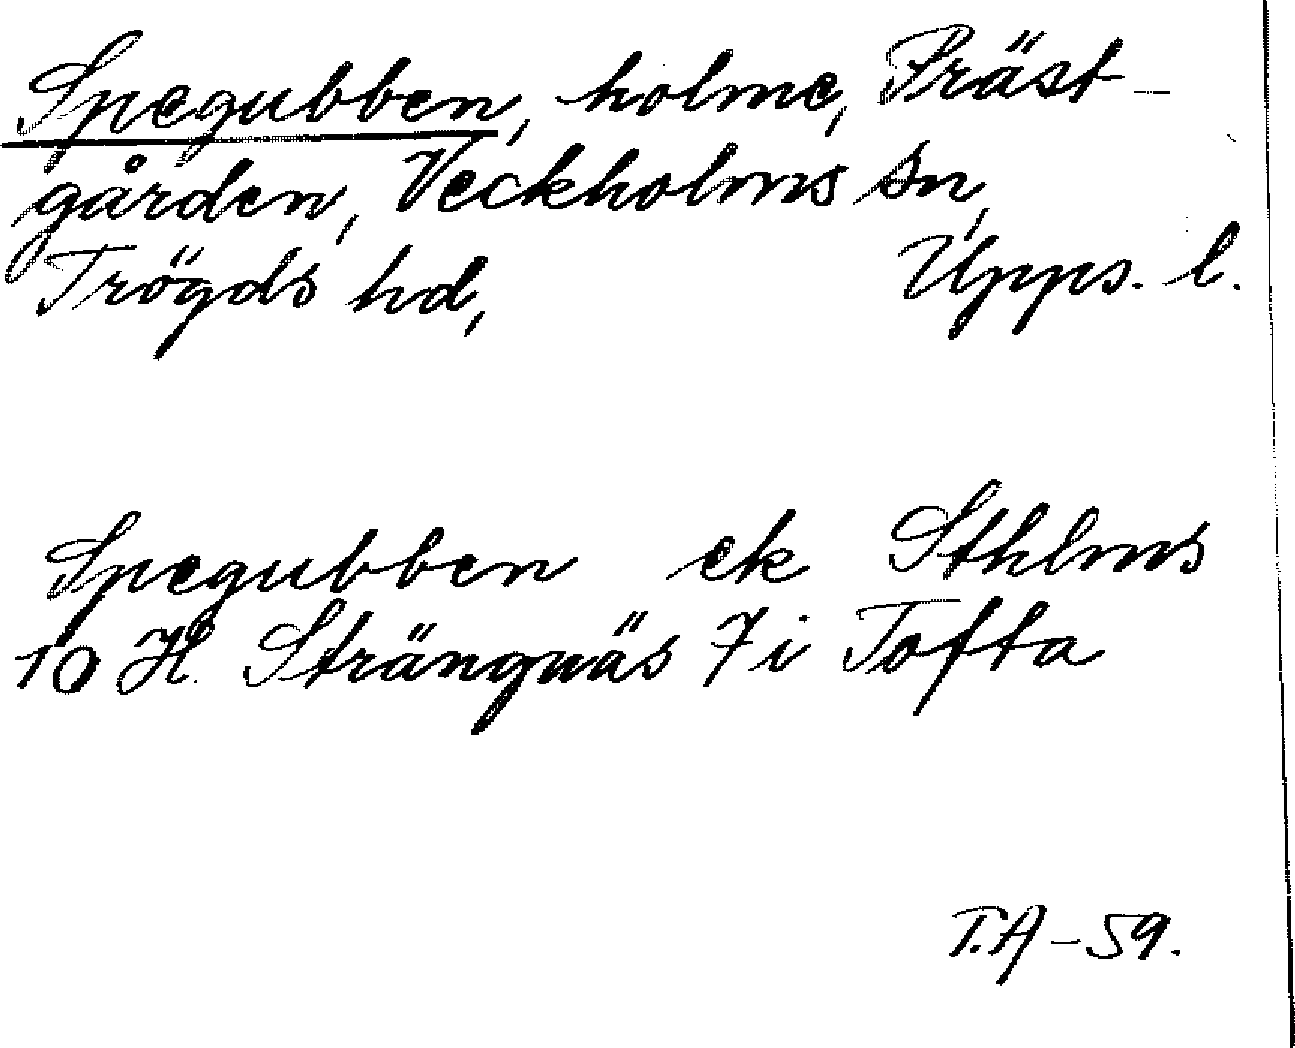 Spegubben, holme, Präst-
gården, Veckholms sn,
Trögds hd, Upps. l.
Spegubben ek Sthlms
10 H. Strängnäs 7i Tofta
T.A-59.